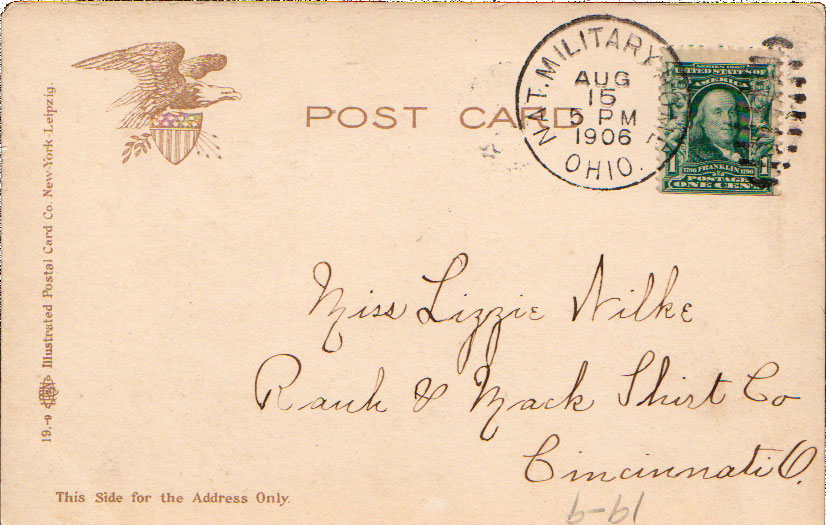 POST CARD
NAT. MILITARY HOME
AUG
15
5 PM
1906
OHIO.
SERIES 1902
UNITED STATES OF
AMERICA
1 1706 FRANKLIN 1790 1
POSTAGE
ONE CENT
19.-9 Illustrated Postal Card Co. New-York Leipzig.
Miss Lizzie Wilke
Rauh & Mack Shirt Co
Cincinnati O.
This Side for the Address Only.
19-9